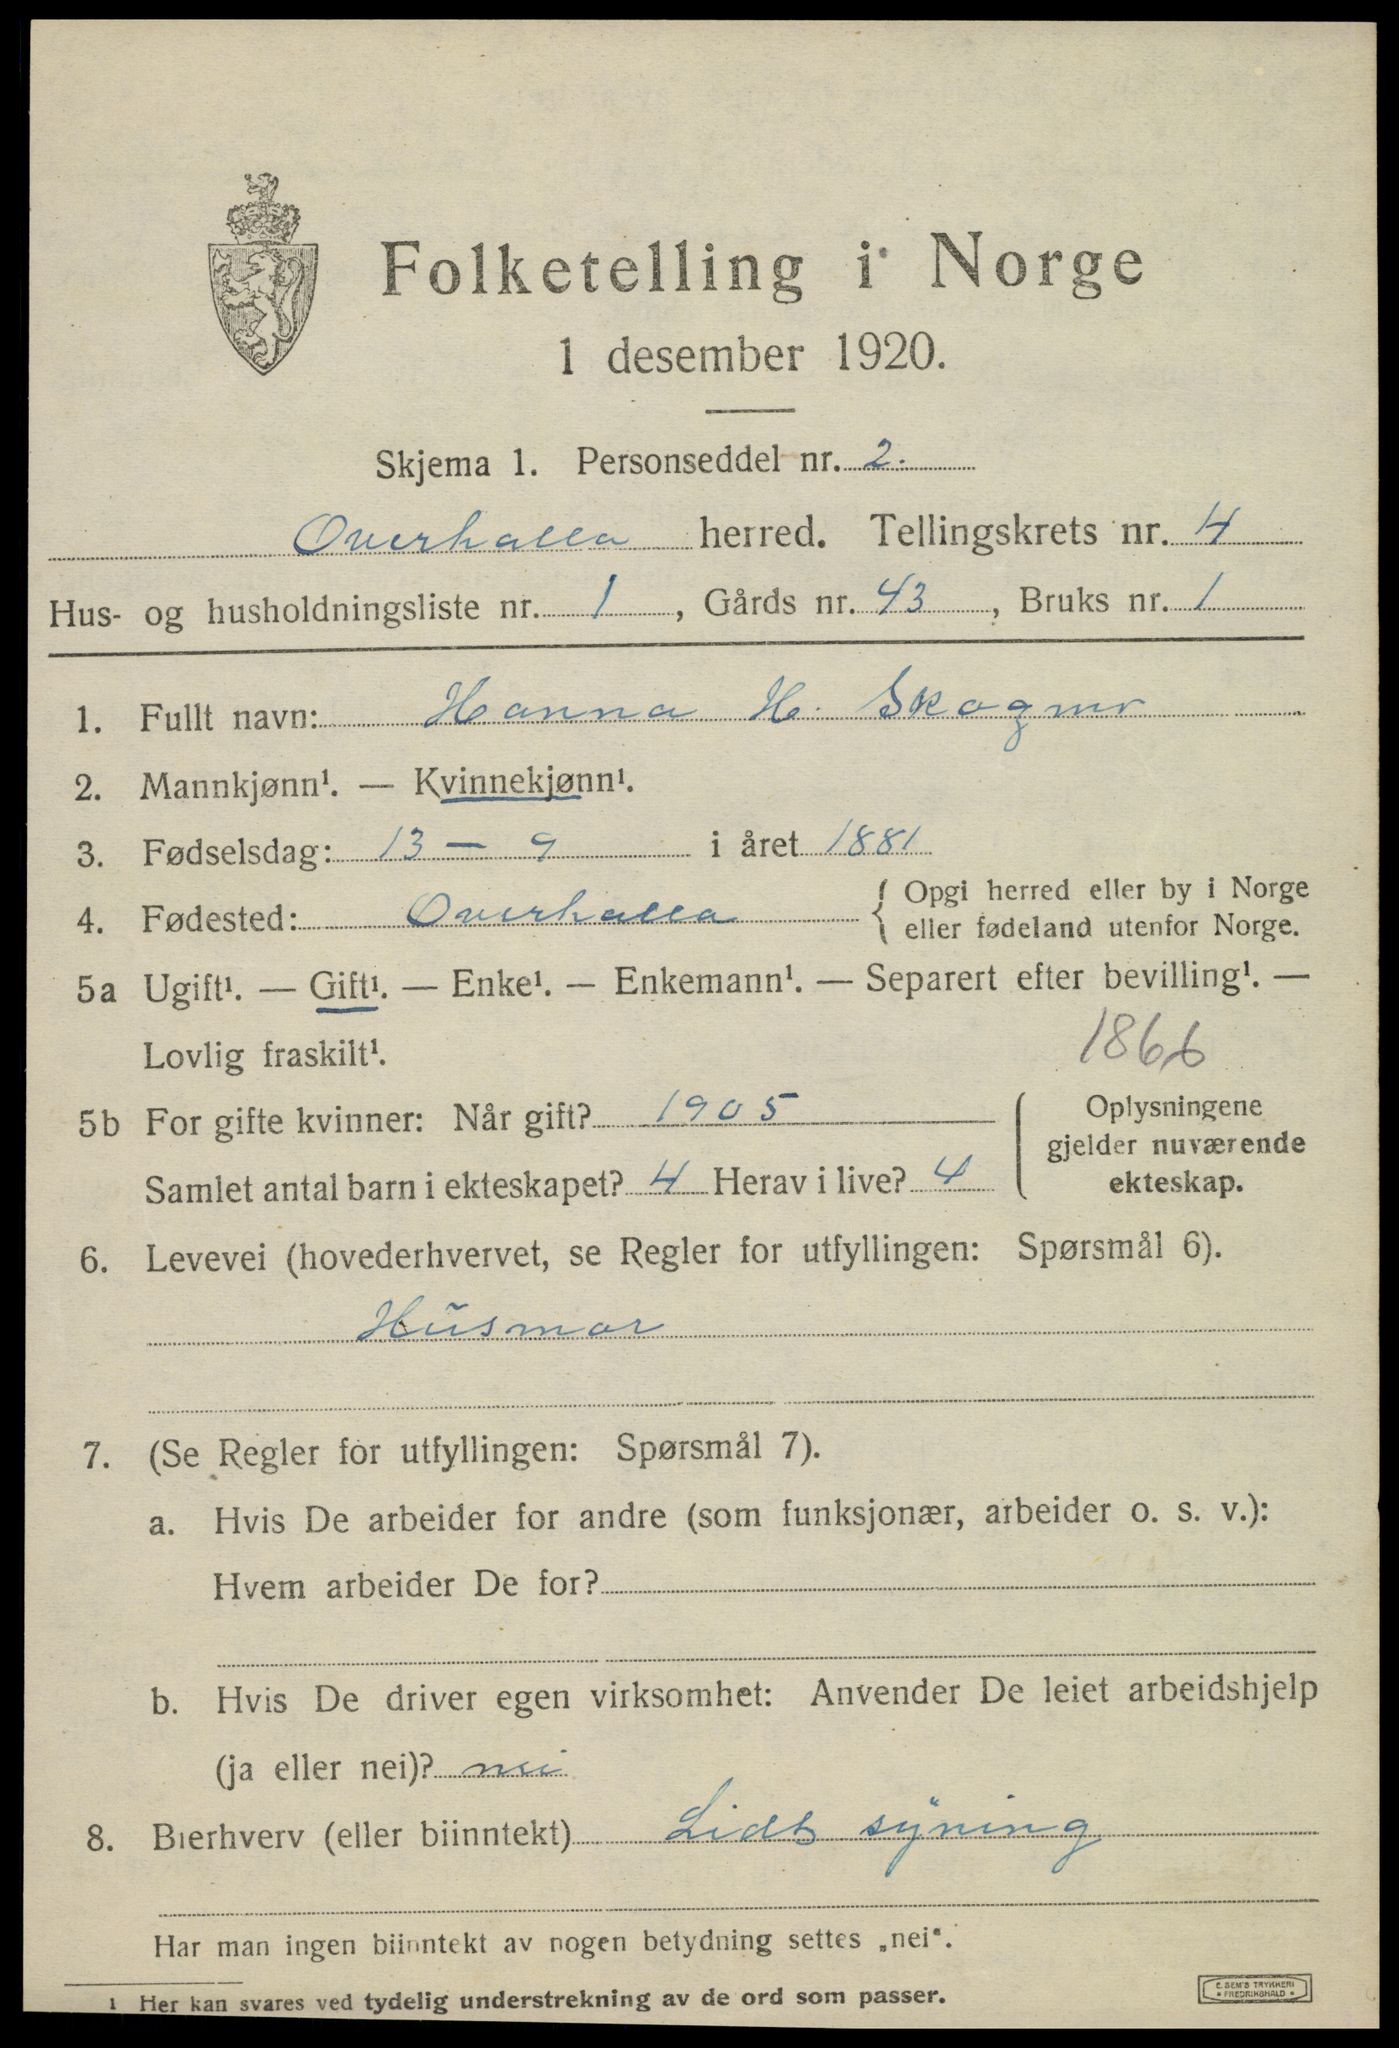 Folketelling i Norge
1 desember 1920.
Skjema 1. Personseddel nr. 2.
Overhalla herred. Tellingskrets nr. 4
Hus- og husholdningsliste nr. 1, Gårds nr. 43, Bruks nr. 1
1. Fullt navn: Hanna H. Skogmo
2. Mannkjønn¹. — Kvinnekjønn¹.
3. Fødselsdag: 13 — 9 i året 1881
4. Fødested: Overhalla { Opgi herred eller by i Norge
eller fødeland utenfor Norge.
5a Ugift¹. — Gift¹. — Enke¹. — Enkemann¹. — Separert efter bevilling¹. —
Lovlig fraskilt¹. 1866
5b For gifte kvinner: Når gift? 1905
Samlet antal barn i ekteskapet? 4 Herav i live? 4
Oplysningene
gjelder nuværende
ekteskap.
6. Levevei (hovederhvervet, se Regler for utfyllingen: Spørsmål 6).
Husmor
7. (Se Regler for utfyllingen: Spørsmål 7).
a. Hvis De arbeider for andre (som funksjonær, arbeider o. s. v.):
Hvem arbeider De for?
b. Hvis De driver egen virksomhet: Anvender De leiet arbeidshjelp
(ja eller nei)? nei
8. Bierhverv (eller biinntekt) Lidt syning
Har man ingen biinntekt av nogen betydning settes „nei“.
1 Her kan svares ved tydelig understrekning av de ord som passer.
E. SEM'S TRYKKERI
• FREDRIKSHALD •